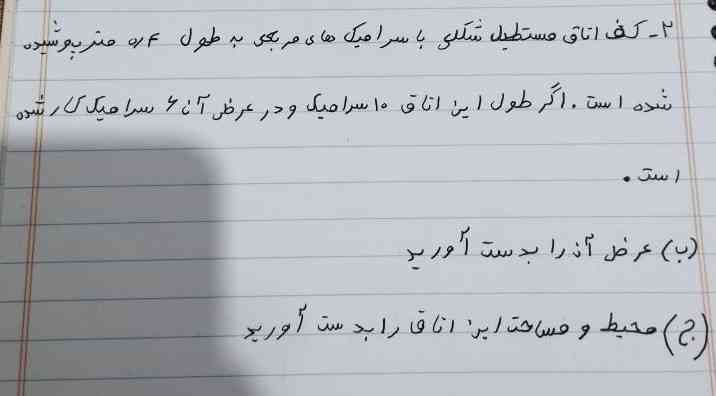 ۲- کف اتاق مستطیل شکلی با سرامیک های مربعی به طول ۰٫۴ متر پوشیده
شده است . اگر طول این اتاق ۱۰ سرامیک و در عرض آن ۶ سرامیک کار شده
است .
ب) عرض آن را بدست آورید
ج) محیط و مساحت این اتاق را بدست آورید